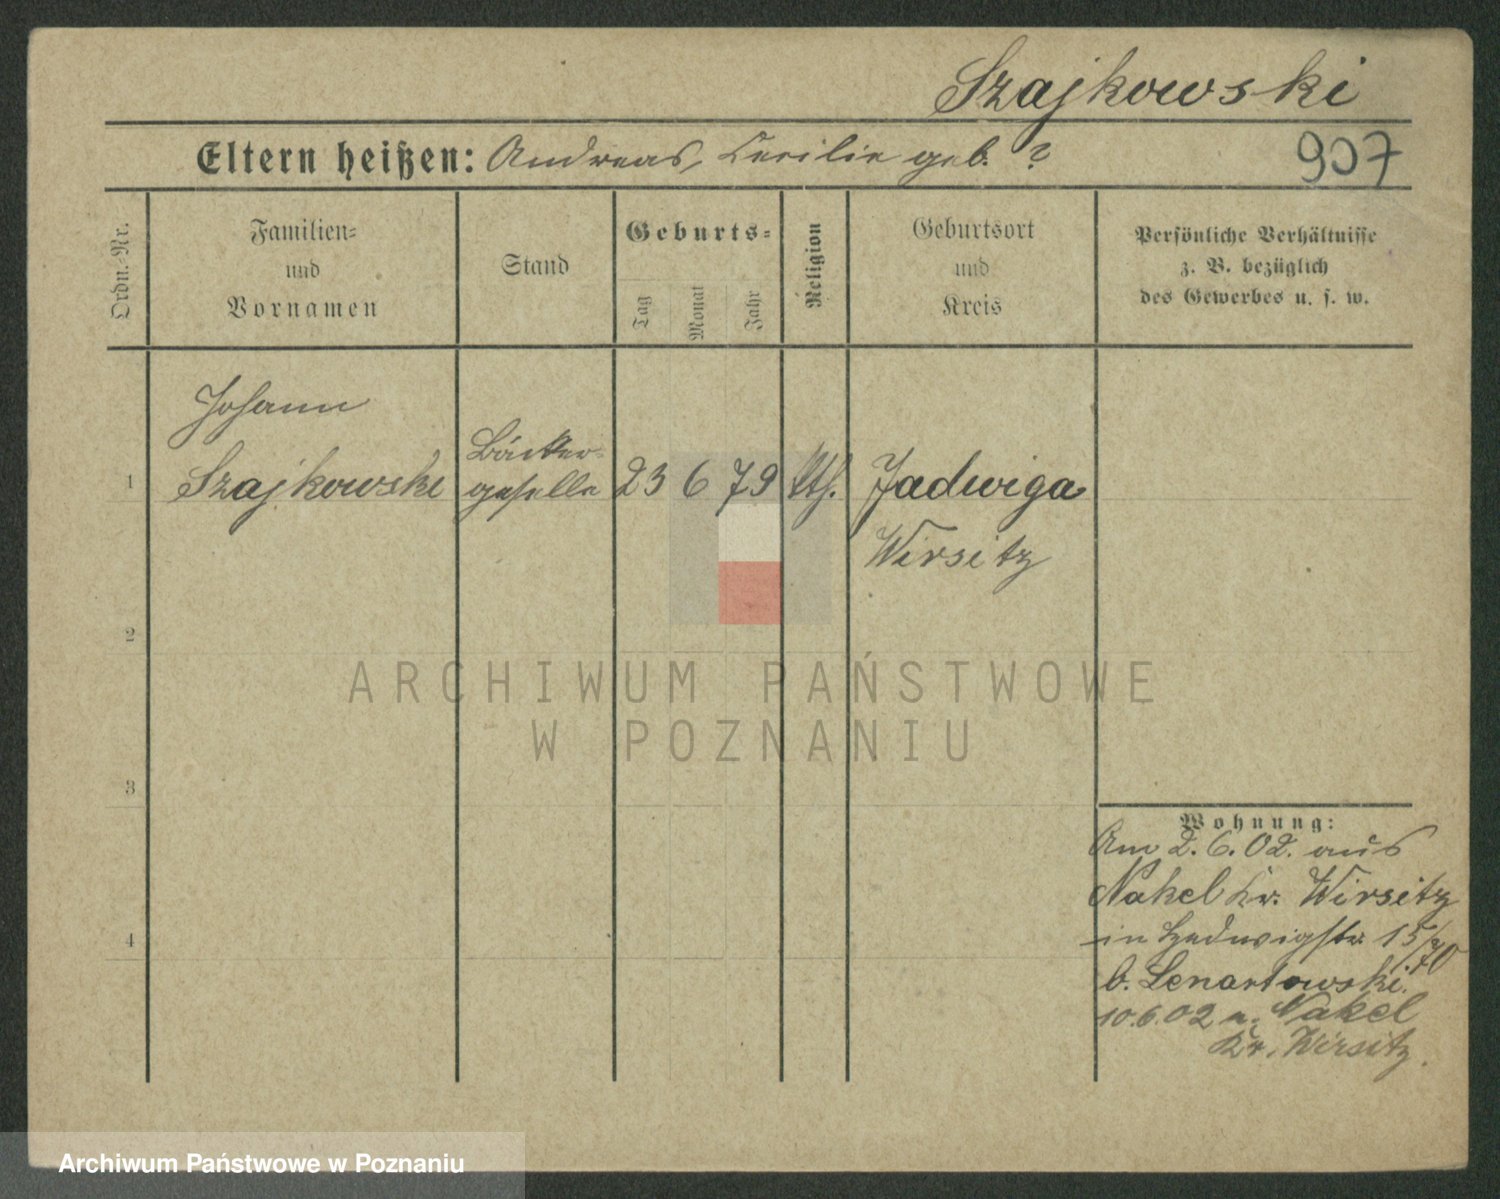 Szajkowski
Eltern heißen: Andreas, Cecilie geb. ?
907
Ordn.-Nr.
Familien-
und
Vornamen
Stand
Geburts-
Tag
Monat
Jahr
Religion
Geburtsort
und
Kreis
Persönliche Verhältnisse
z. B. bezüglich
des Gewerbes u. s. w.
Johann
1 Szajkowski
Bäcker-
geselle
23 6 79 kth. Jadwiga
Wirsitz
2
3
4
Wohnung:
Am 2.6.02. aus
Nakel Kr. Wirsitz
in Hedwigstr. 15/70
b. Lenartowski.
10.6.02 n. Nakel
Kr. Wirsitz.
ARCHIWUM PAŃSTWOWE
W POZNANIU
Archiwum Państwowe w Poznaniu